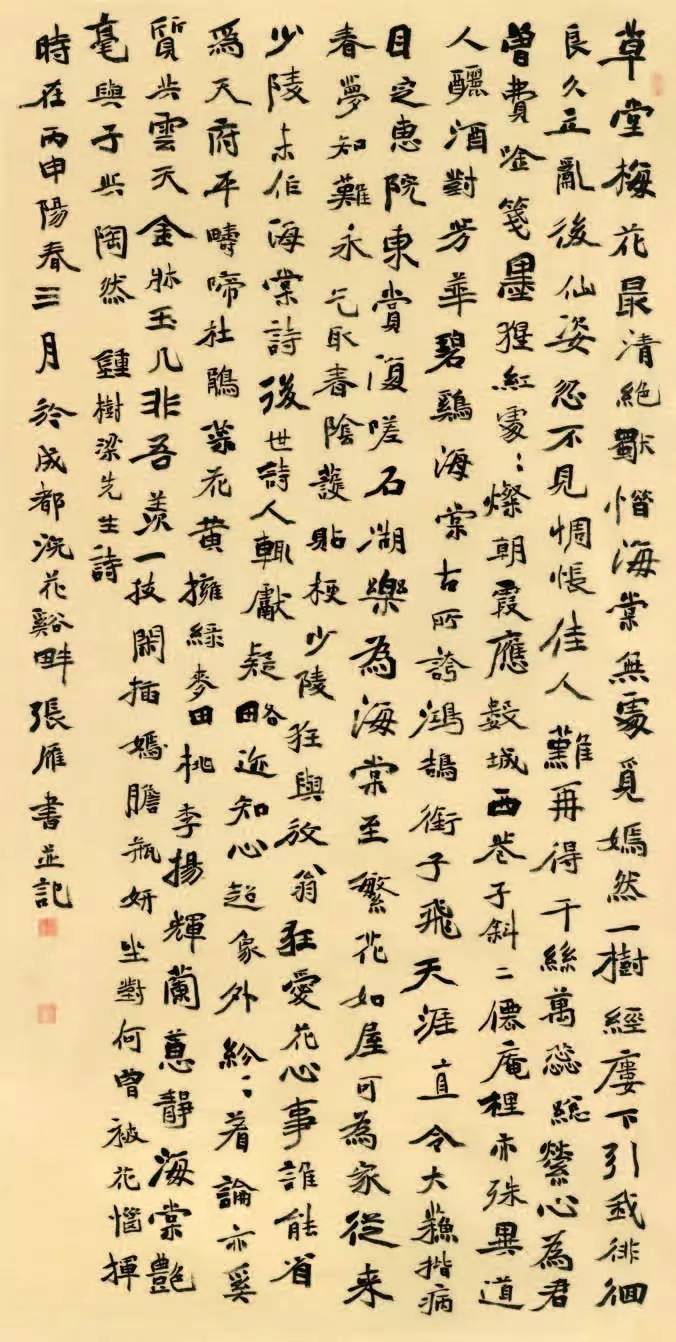 草堂梅花最清絕獸惜海棠無處覓嫣然一樹經廔下引我徘徊
良久立亂後仙姿忽不見惆悵佳人難再得千絲萬蕊總縈心為君
曾費唫箋墨猩紅處〻燦朝霞應數城西巷子斜二僊庵裡亦殊異道
人釃酒對芳華碧雞海棠古所誇鴻鵠銜子飛天涯直令大蘇揩病
目定惠院東賞復嗟石湖樂為海棠至繁花如屋可為家從来
春夢知難永乞取春陰護貼梗少陵狂與放翁狂愛花心事誰能省
少陵未作海棠詩後世詩人輒獻疑略迹知心超象外紛〻着論亦奚
為天府平疇啼杜鵑菜花黄擁緑麥田桃李揚輝蘭蕙靜海棠艷
質共雲天金牀玉几非吾羨一技閑插嫣膽瓶妍坐對何曾被花惱揮
毫與子共陶然 鍾樹梁先生詩
時在丙申陽春三月於成都浣花谿畔張雁書並記